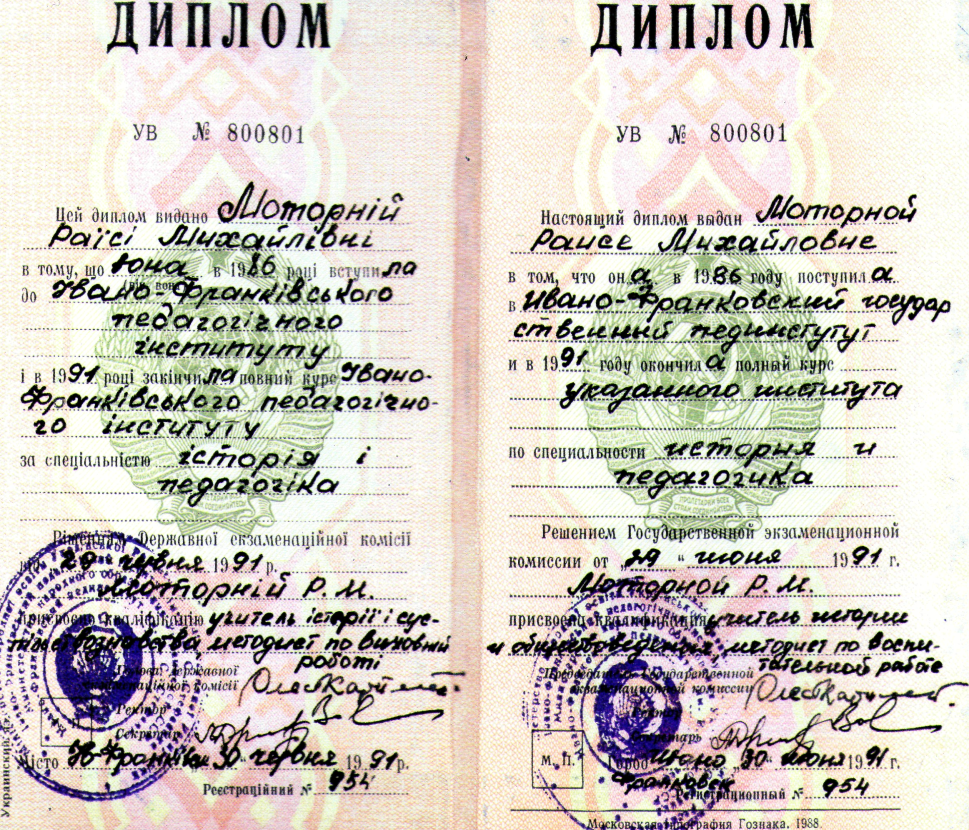 ДИПЛОМ
УВ № 800801
Цей диплом видано Моторній
Раїсі Михайлівні
в тому, що вона в 1986 році вступила
до Івано-Франківського
педагогічного
інституту
і в 1991 році закінчила повний курс Івано-
Франківського педагогічно-
го інституту
за спеціальністю історія і
педагогіка
Рішенням Державної екзаменаційної комісії
від 29 червня 1991 р.
Моторній Р. М.
присвоєно кваліфікацію учитель історії і сус-
пільствознавства, методист по виховній
роботі
Голова Державної
екзаменаційної комісії
Ректор
Секретар
М. П.
Місто Ів-Франківськ "30" червня 1991 р.
Реєстраційний № 954
Украинский яз.
ДИПЛОМ
УВ № 800801
Настоящий диплом выдан Моторной
Раисе Михайловне
в том, что она в 1986 году поступила
в Ивано-Франковский государ
ственный пединстутут
и в 1991 году окончила полный курс
указанного института
по специальности история и
педагогика
Решением Государственной экзаменационной
комиссии от "29" июня 1991 г.
Моторной Р. М.
присвоена квалификация учитель истории
и обществоведения, методист по воспи-
тательной работе
Председатель Государственной
экзаменационной комиссии
Ректор
Секретарь
М. П.
Город Ивано "30" июня 1991 г.
Франковск
Регистрационный № 954
Московская типография Гознака. 1988.